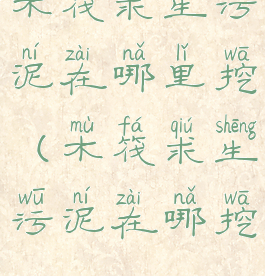 木筏求生污
ní zài nǎ lǐ wā
泥在哪里挖
mù fá qiú shēng
（木筏求生
wū ní zài nǎ wā
污泥在哪挖